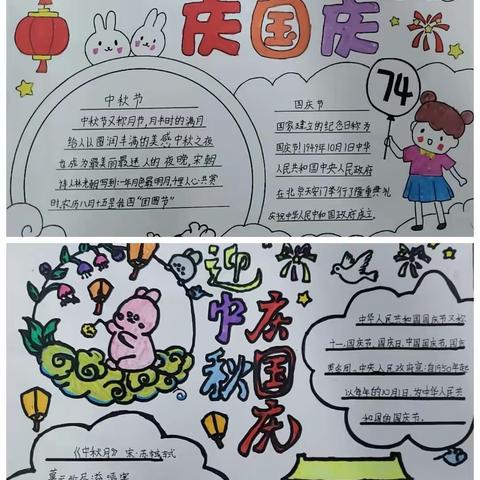 庆国庆
中秋节
中秋节又称月节,月半时的满月
给人以圆润丰满的美感,中秋之夜
也成为最美丽最迷人的夜晚,宋朝
诗人林光朝写到:一年月色最明月,十里人心共赏
时,农历八月十五是我国"团圆节"
国庆节
国家建立的纪念日称为
国庆节1949年10月1日中华
人民共和国中央人民政府
在北京天安门举行了隆重典礼
庆祝中华人民中和国政府成立
74
迎中秋
庆国庆
中华人民共和国国庆节又称
十一,国庆节,国庆日,中国国庆节,国庆
中央人民政府宣:自1950年起
以每年的10月1日,为中华人民共
和国的国庆节。
《中秋月》 宋·苏轼
暮云收尽溢清寒